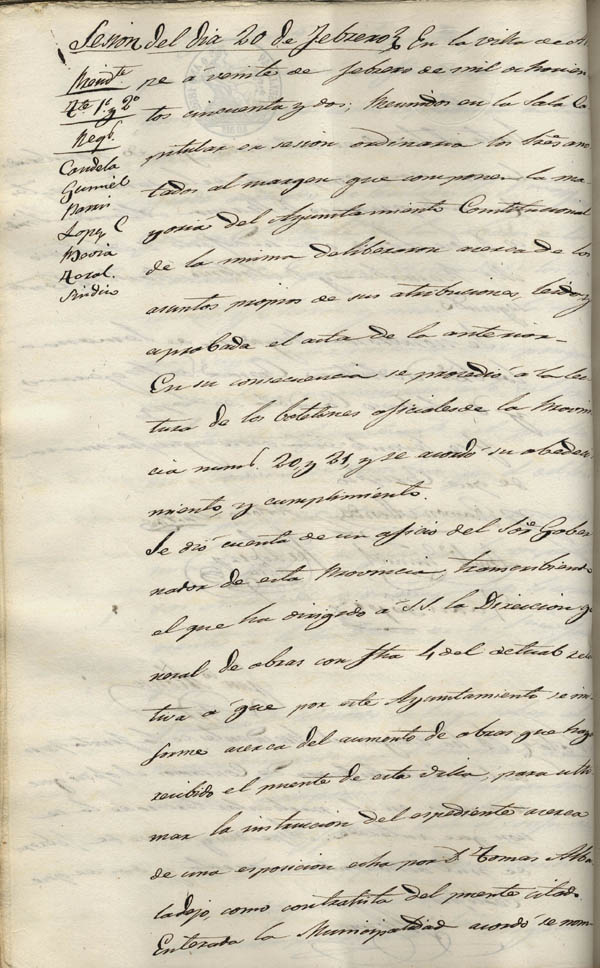 Sesion del dia 20 de Febrero } En la villa de
Presid.te
Tte. 1º y 2º
Reg.s
Candela
Gumiel
Lopez C
Sindico
pe a veinte de febrero de mil ochocien
tos cincuenta y dos; Reunidos en la Sala Ca
pitular en sesion ordinaria los Sres ano
tados al margen que componen la ma
yoria del Ayuntamiento Constitucional
de la misma deliberaron acerca de los
asuntos propios de sus atribuciones, leida y
aprobada el acta de la anterior.
En su consecuencia se procedió á la lec
tura de los boletines oficiales de la Provin
cia num.s 20, y 21, y se acordó su obedeci
miento, y cumplimiento.
Se dió cuenta de un oficio del Sor Gober
nador de esta Provincia, transcribiendo
el que ha dirigido á S.S. la Direccion ge
neral de obras con fha 4 del actual rela
tiva á que por este Ayuntamiento se in
forme acerca del aumento de obras que haya
recibido el puente de esta villa, para ulti
mar la instrucion del espediente acerca
de una esposicion echa por D. Tomas Alba
ladejo, como contratista del puente citado.
Enterada la Municipalidad acordó se nom